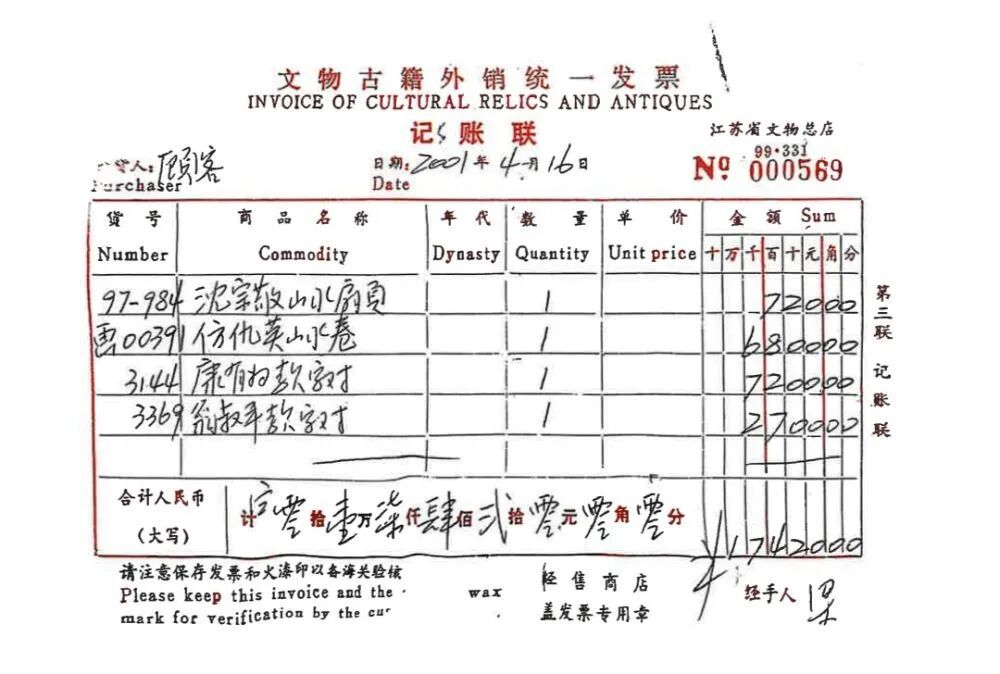 文物古籍外销统一发票
INVOICE OF CULTURAL RELICS AND ANTIQUES
记账联
江苏省文物总店
99·331
货人: 顾客
Purchaser
日期: 2001年4月16日
Date
Nº 000569
货号 商品名称 年代 数量 单价 金额 Sum
Number Commodity Dynasty Quantity Unit price 十万千百十元角分
97-984 沈宗敬山水扇頁 1 72000
画00391 仿仇英山水卷 1 680000
3144 康有为款字对 1 720000
3369 翁叔平款字对 1 270000
合计人民币
(大写)
计 零拾壹万柒仟肆佰贰拾零元零角零分 ¥1742000
第三联 记账联
请注意保存发票和火漆印以备海关验核
Please keep this invoice and the wax
mark for verification by the cu
经售商店
盖发票专用章
经手人